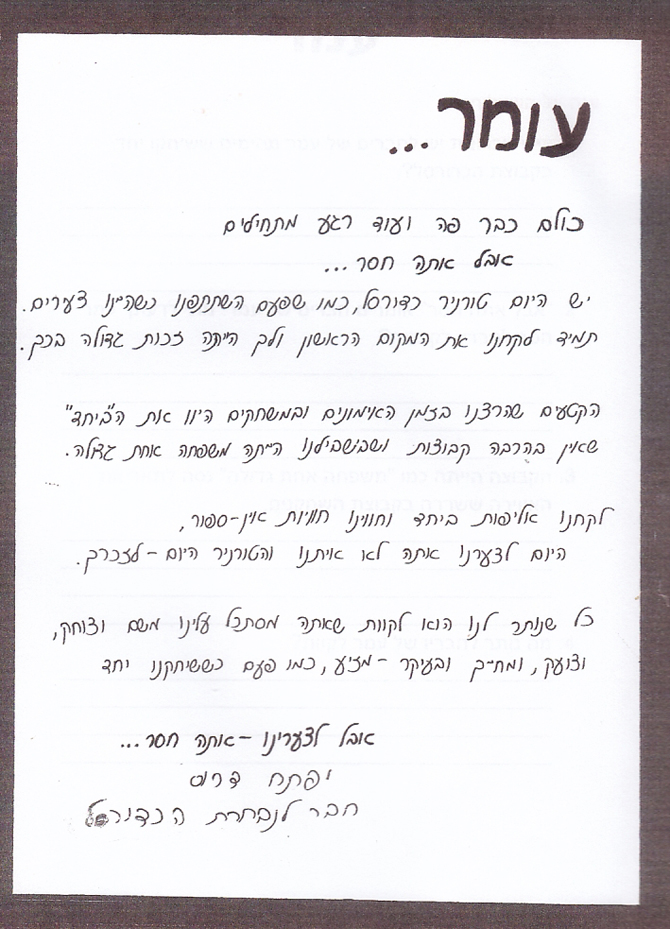 עומר...
כולם כבר פה ועוד רגע מתחילים
אבל אתה חסר...
יש היום טורניר כדורסל, כמו שפעם השתתפנו כשהיינו צעירים.
תמיד לקחנו את המקום הראשון ולך הייתה זכות גדולה בכך.
הקטעים שהרצנו בזמן האימונים ובמשחקים היוו את ה"ביחד"
שאין בהרבה קבוצות ושבשבילנו הייתה משפחה אחת גדולה.
לקחנו אליפות ביחד וחווינו חוויות אין-ספור,
היום לצערנו אתה לא איתנו והטורניר היום - לזכרך.
כל שנותר לנו הוא לקוות שאתה מסתכל עלינו משם וצוחק,
וצועק, ומחייך ובעיקר - מזיע, כמו פעם כששיחקנו יחד
אבל לצערינו - אתה חסר...
יפתח דרום
חבר לנבחרת הכדורסל